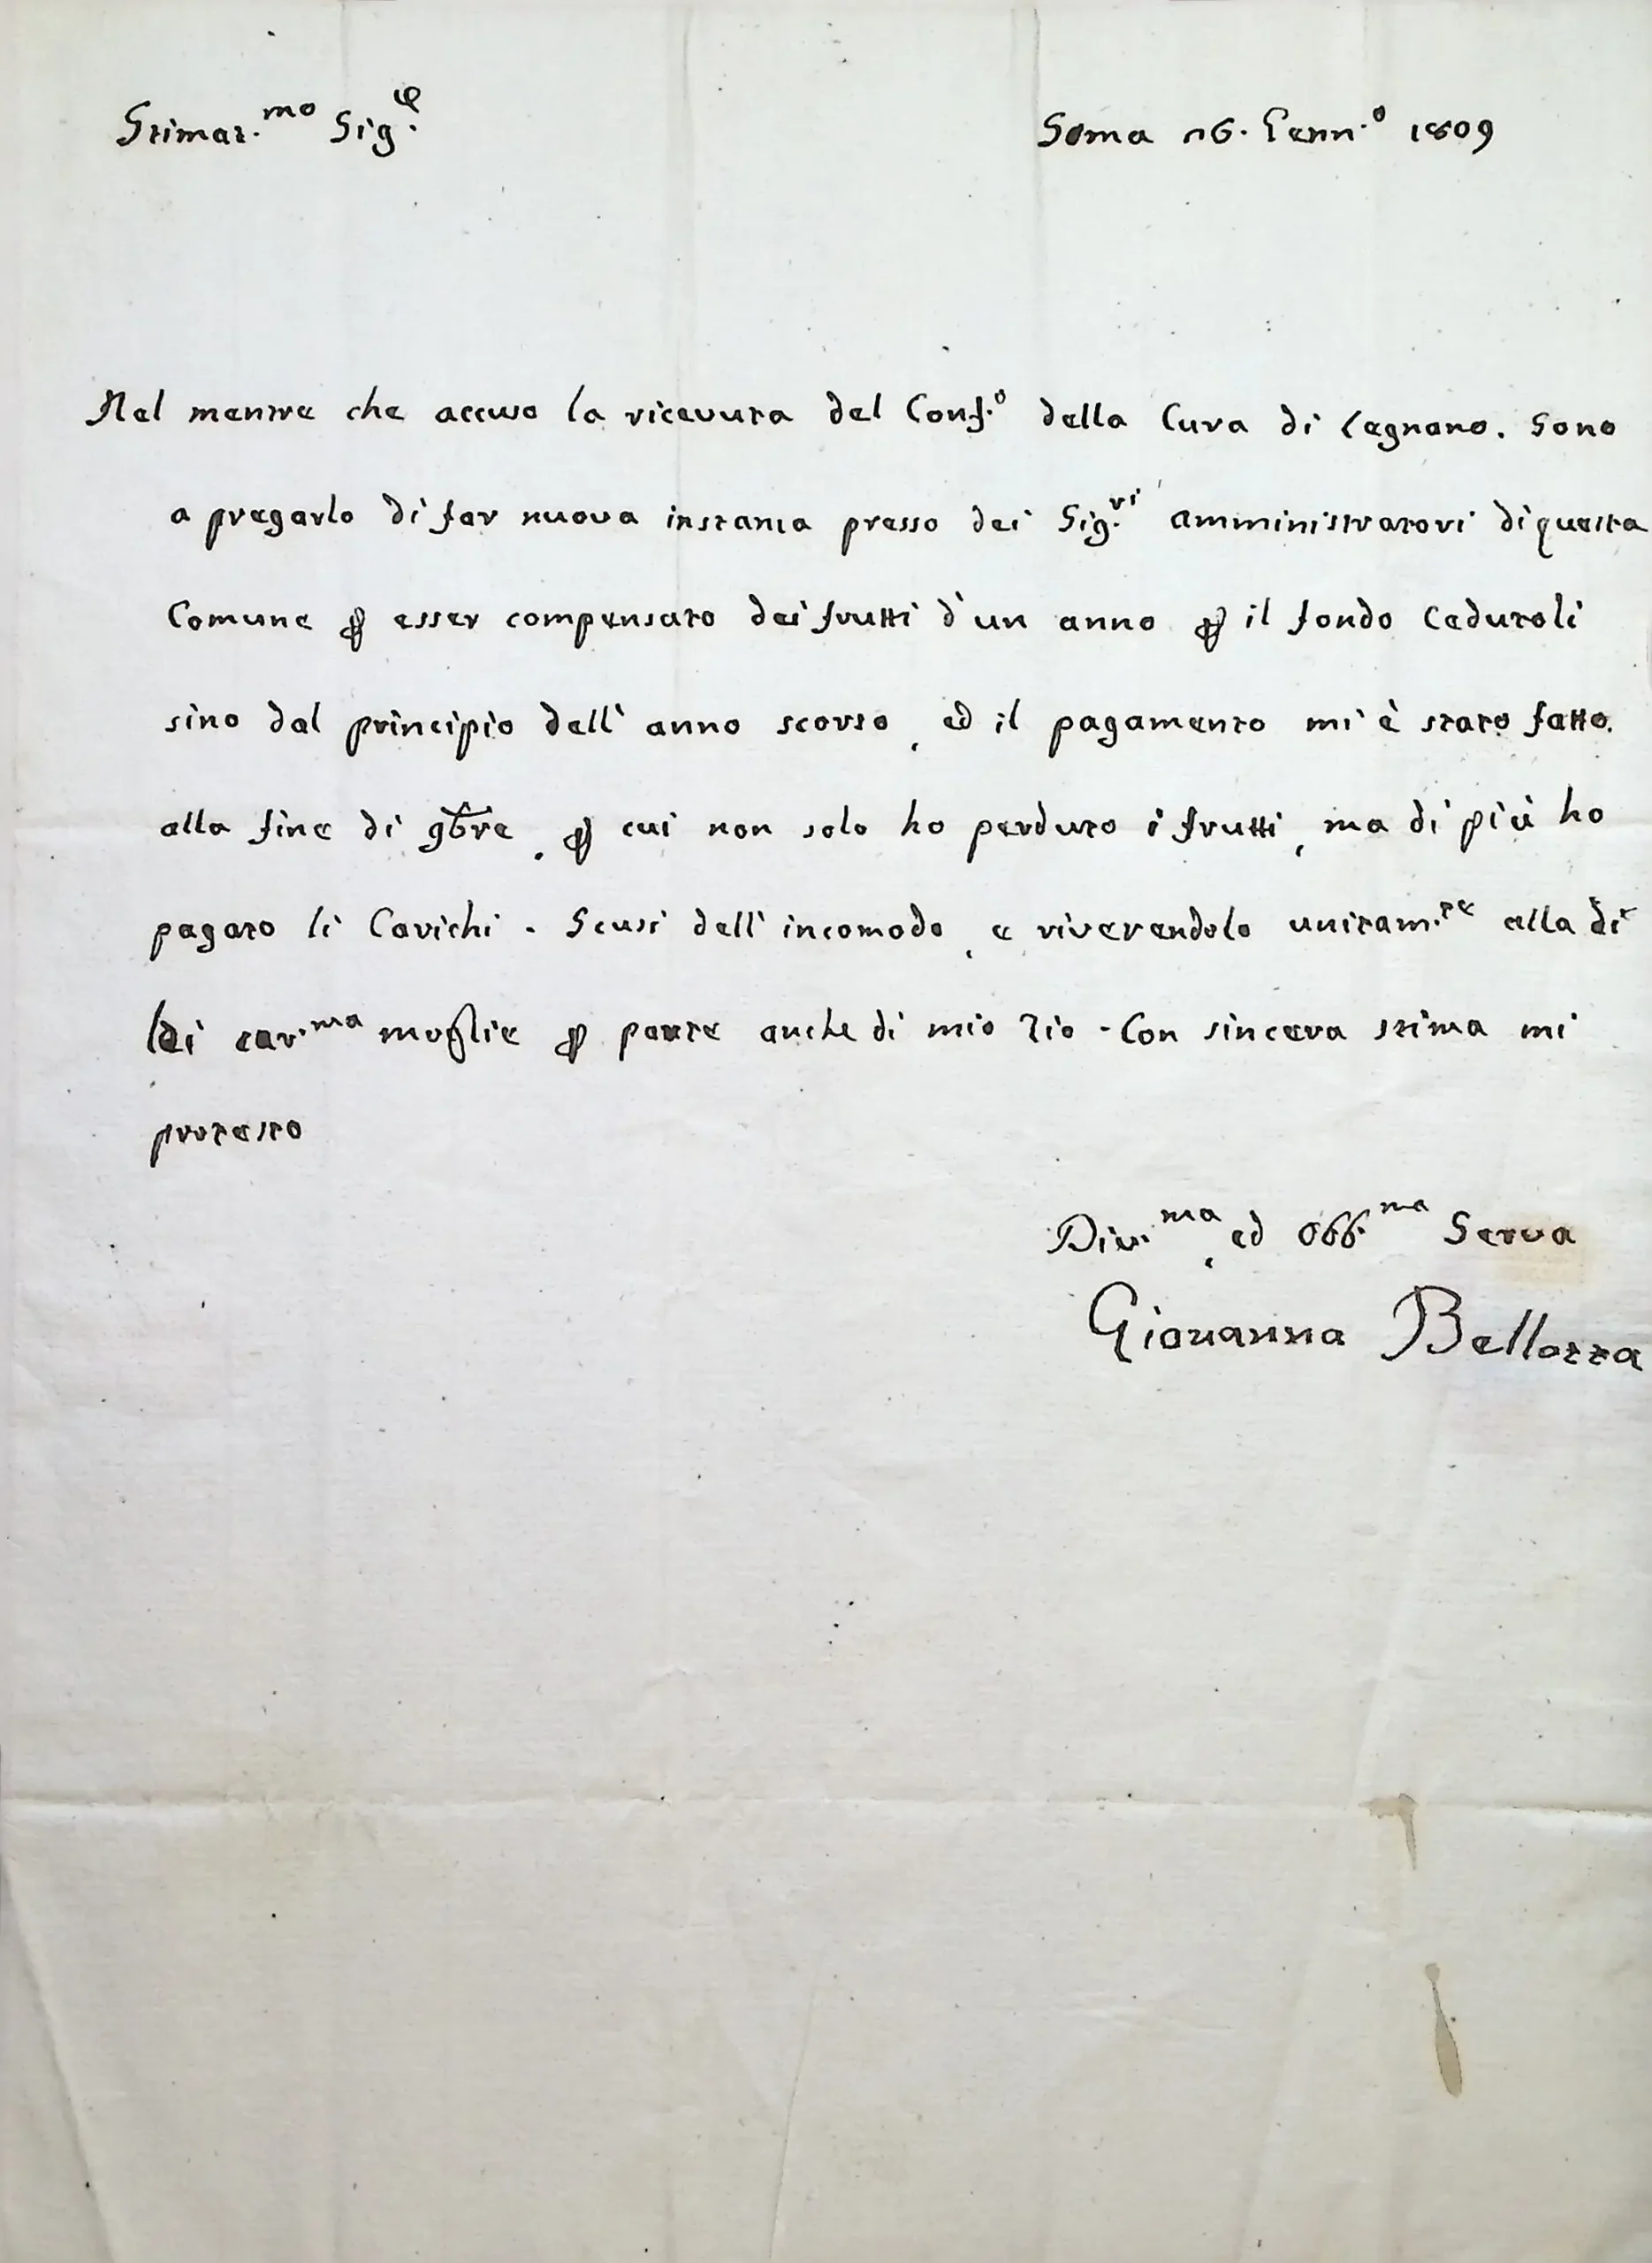 Stimat.mo Sig.e
Soma 16. Genn.o 1809
Nel mentre che accuso la ricevuta del Conf.o della Cura di Legnano. Sono
a pregarlo di far nuova instanza presso dei Sig.ri amministratori di questa
Comune ꝑ esser compensato dei frutti d'un anno ꝑ il fondo Cedutoli
sino dal principio dell'anno scorso, ed il pagamento mi è stato fatto.
alla fine di 9bre, ꝑ cui non solo ho perduto i frutti, ma di più ho
pagato li Carichi. Scusi dell'incomodo, e riverendolo unitam.te alla di
lei car.ma moglie ꝑ parte anche di mio Zio. Con sincera stima mi
protesto
Div.ma, ed Obb.ma Serva
Giovanna Bellozza